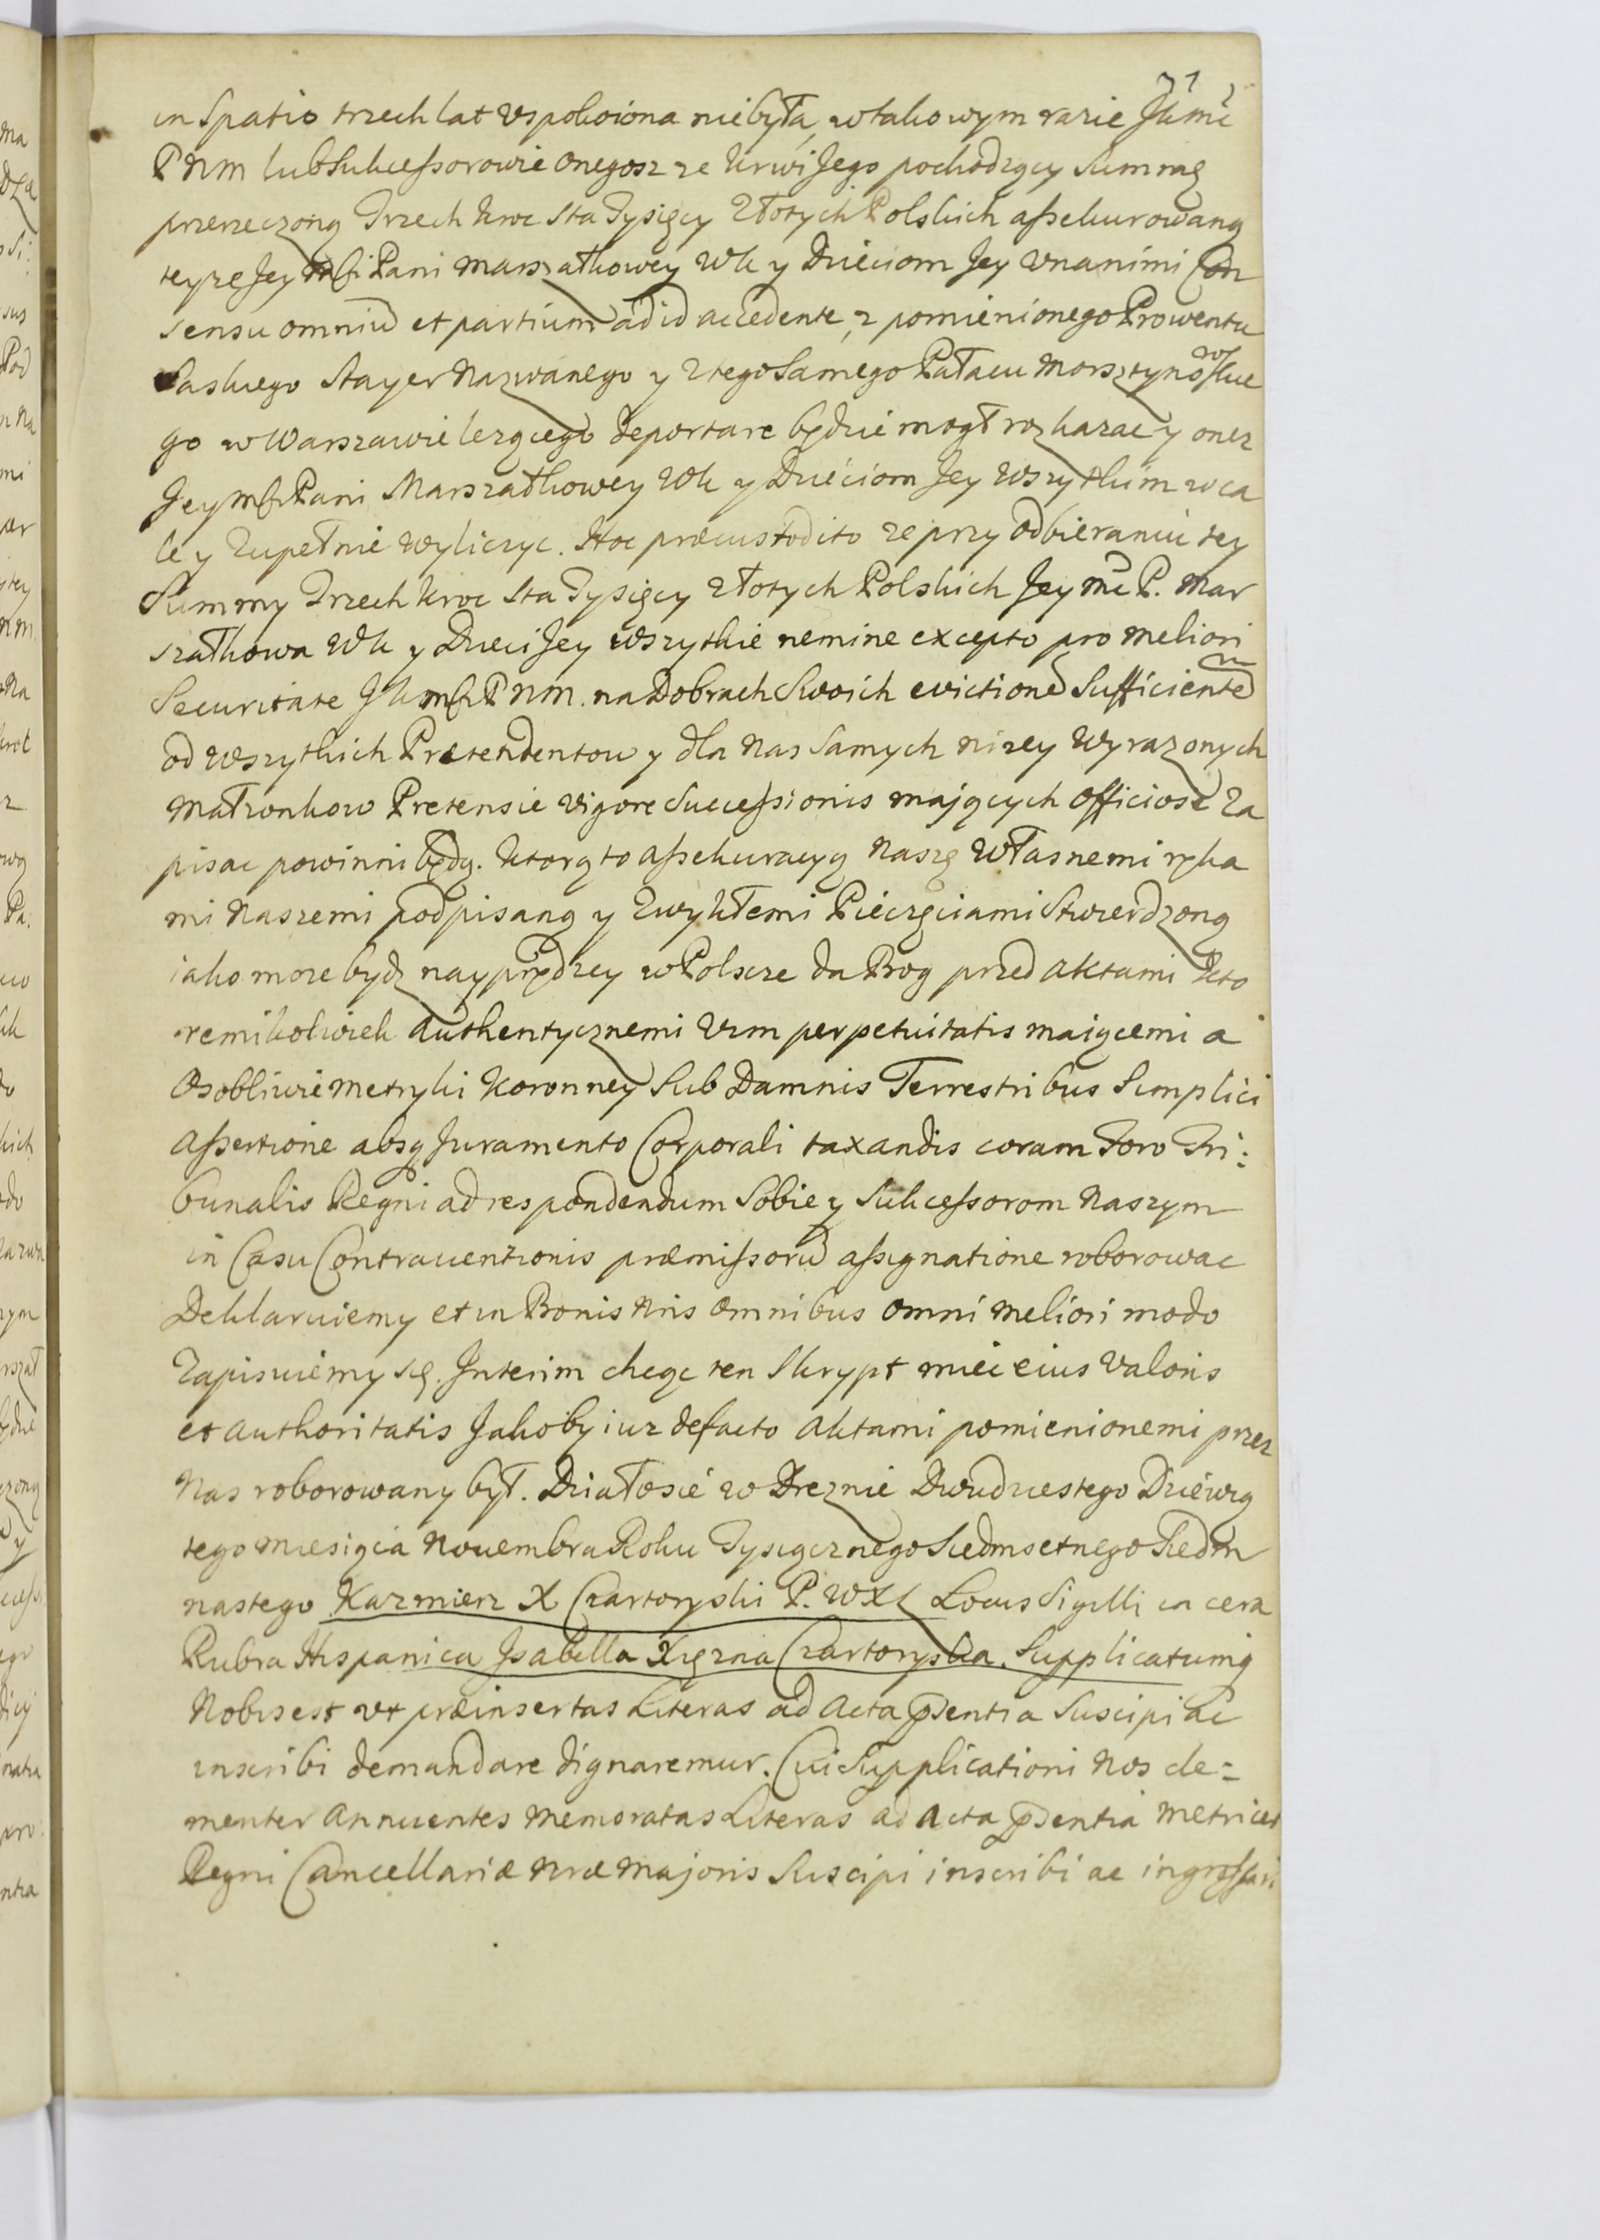 71
in Spatio trzech lat uspokoiona niebyła, w takowym razie Jkmć
PNM lub Sukcessorowie onegosz ze krwi Jego pochodzący Summę
przerzeczoną Trzech kroc Sta Tysięcy Złotych Polskich assekurowaną
teyze Jey Mći Pani Marszałkowey Wk y Dzieciom Jey unanimi Con
sensu omniū et partium ad id accedente, z pomienionego Prowentu
Saskiego Stayer Nazwanego y z tego Samego Pałacu Morsztynowskie
go w Warszawie lezącego deportare będzie mogł rozkazac y onez
Jeymći Pani Marszałkowey Wk y Dzieciom Jey Wszytkim w ca
le y Zupełnie wyliczyc. Hoc præcustodito ze przy odbieraniu tey
Summy Trzech kroc Sta Tysięcy Złotych Polskich Jeymć P. Mar
szałkowa Wk y Dzieci Jey wszytkie nemine excepto pro meliori
Securitate JKmći PNM. na Dobrach Swoich evictionē Sufficientē
od wszytkich Pretendentow y dla Nas Samych nizey Wyrazonych
Małzonkow Pretensie vigore Successionis mających officiose Za
pisac powinni będą. Ktorą to assekuracyą Naszę własnemi ręka
mi Naszemi podpisaną y Zwykłemi Pieczęciami Stwierdzoną
iako moze bydz nayprędzey w Polszcze da Bog przed aktami kto
remikolwiek Authentycznemi Vim perpetuitatis maiącemi a
Osobliwie Metryki Koronney Sub Damnis Terrestribus Simplici
Assertione absq Juramento Corporali taxandis coram Foro Tri:
bunalis Regni ad respondendum Sobie y Sukcessorom Naszym
in Casu Contraventionis præmissorū assignatione roborowac
Deklaruiemy et in Bonis Nris Omnibus omni meliori modo
Zapisuiemy się. Interim chcąc ten Skrypt miec eius Valoris
et Authoritatis Jakoby iuz defacto Aktami pomienionemi przez
Nas roborowany był. Działosie w Dreznie Dwudziestego Dziewią
tego Miesiąca Novembra Roku Tysiącznego Siedmsetnego Siedm
nastego Kazmierz X Czartoryski P. WXL Locus Sigilli in cera
Rubra Hispanica Isabella Xięzna Czartoryska. Supplicatumq
Nobis est ut præinsertas Literas ad Acta psentia Suscipi ac
inscribi demandare dignaremur. Cui Supplicationi Nos cle=
menter Annuentes Memoratas Literas ad Acta psentia Metrices
Regni Cancellariæ Nræ Majoris Suscipi inscribi ac ingrossari